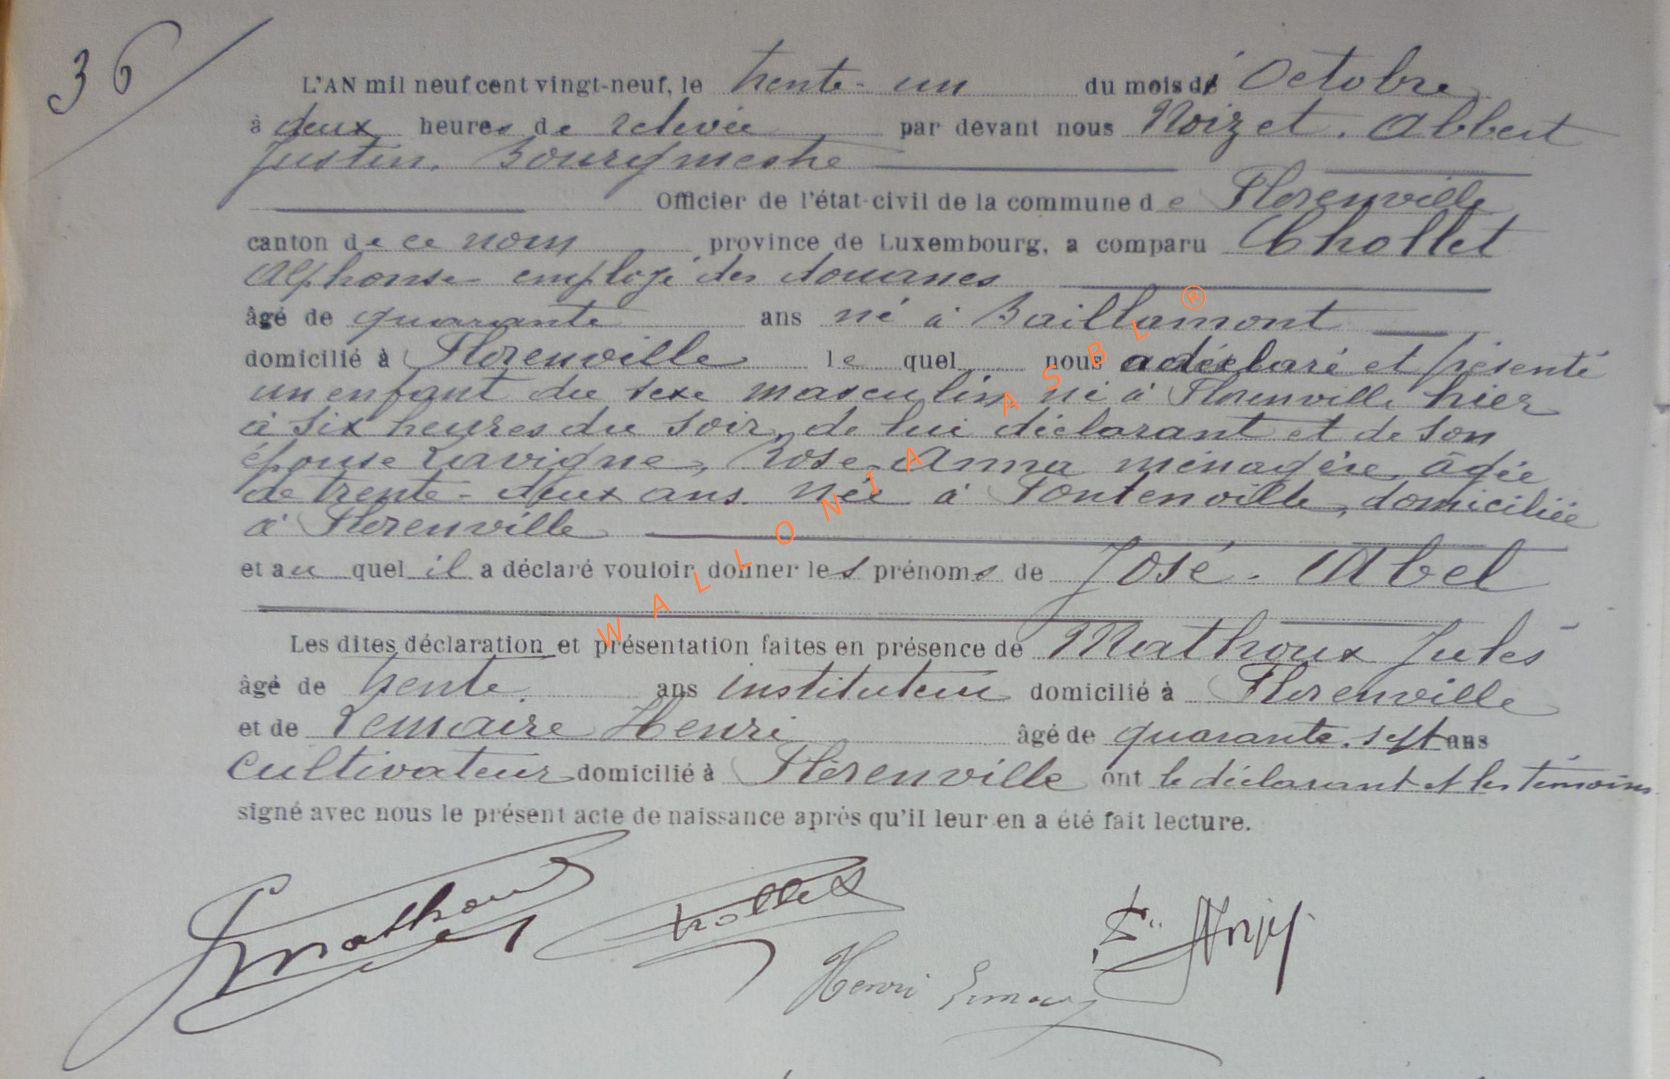 36
L'AN mil neuf cent vingt-neuf, le trente-un du mois d' Octobre
à deux heures de relevée par devant nous Noizet. Albert
Justin. Bourgmestre
Officier de l'état-civil de la commune de Florenville
canton de ce nom province de Luxembourg, a comparu Chollet
Alphonse employé des douanes
âgé de quarante ans né à Baillamont
domicilié à Florenville le quel nous a déclaré et présenté
un enfant du sexe masculin né à Florenville hier
à six heures du soir, de lui déclarant et de son
épouse Lavigne, Rose-Anna ménagère, âgée
de trente-deux ans née à Fontenville, domiciliée
à Florenville
et au quel il a déclaré vouloir donner les prénoms de José. Abel
Les dites déclaration et présentation faites en présence de Mathoux Jules
âgé de trente ans instituteur domicilié à Florenville
et de Lemaire Henri âgé de quarante-sept ans
cultivateur domicilié à Florenville ont le déclarant et les témoins
signé avec nous le présent acte de naissance après qu'il leur en a été fait lecture.
Mathoux Chollet
Henri
WALLONIA ASBL ®